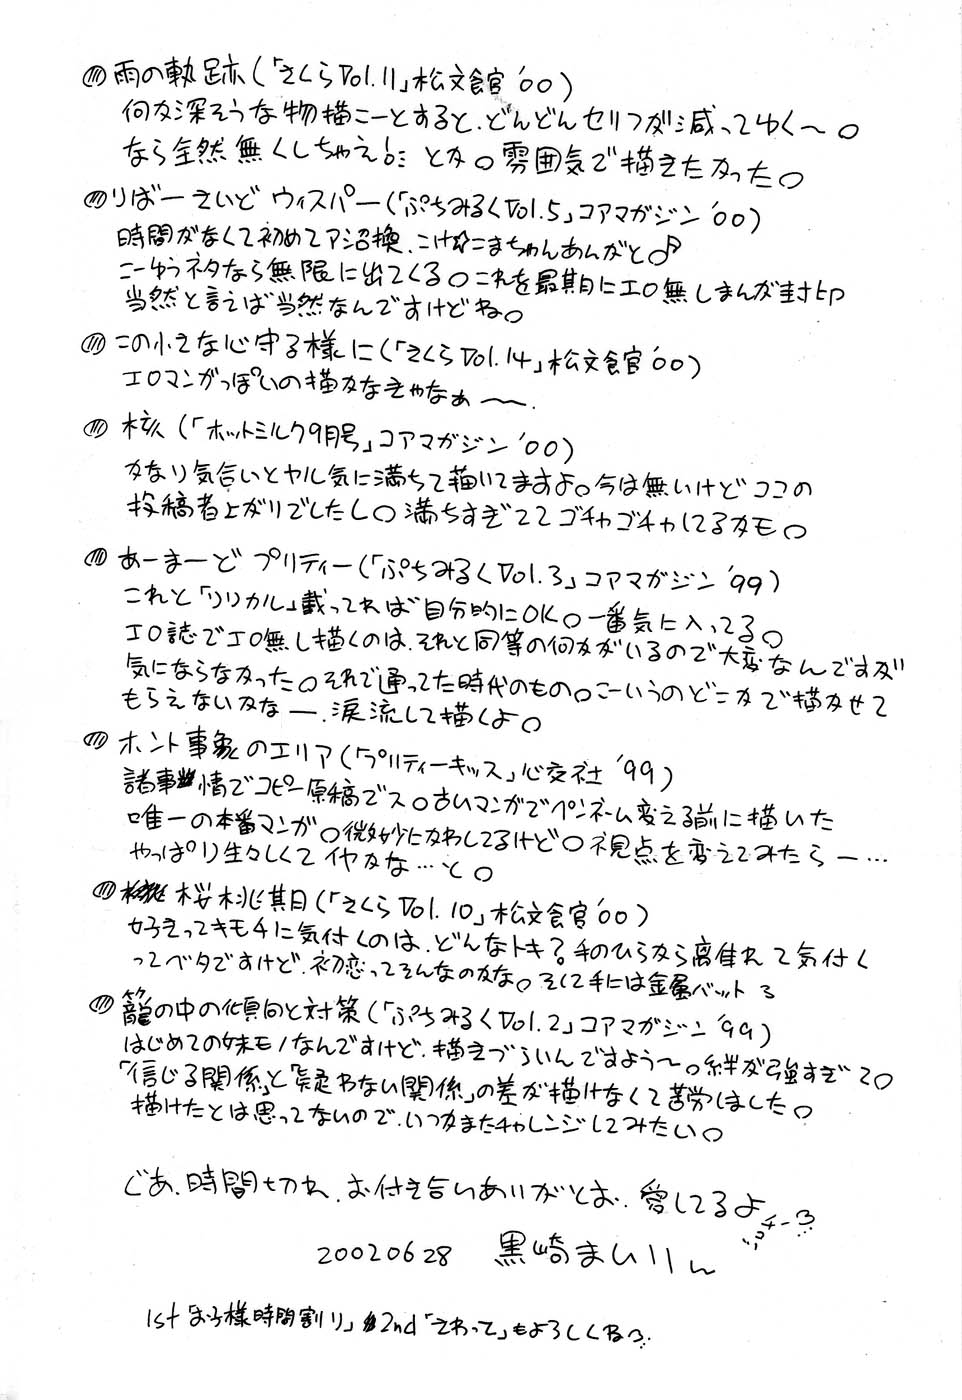 雨の軌跡(「さくらVol.11」松文館'00)
何か深そうな物描こーとすると、どんどんセリフが減ってゆく〜。
なら全然無くしちゃえ!! とか。雰囲気で描きたかった。
りばーさいど ウィスパー(「ぷちみるくVol.5」コアマガジン'00)
時間がなくて初めてア沼換、こけ☆こまちゃんあんがと♪
こーゆうネタなら無限に出てくる。これを最期にエロ無しまんが封印
当然と言えば当然なんですけどね。
この小さな心守る様に(「さくらVol.14」松文館'00)
エロマンガっぽいの描かなきゃなぁ〜〜.
核(「ホットミルク9月号」コアマガジン'00)
かなり気合いとヤル気に満ちて描いてますよ。今は無いけどココの
投稿者上がりでしたし。満ちすぎててゴチャゴチャしてるかも。
あーまーど プリティー(「ぷちみるくVol.3」コアマガジン'99)
これと「リリカル」載ってれば自分的にOK。一番気に入ってる。
エロ誌でエロ無し描くのは、それと同等の何かがいるので大変なんですが
気にならなかった。それで通ってた時代のもの。こーいうのどこかで描かせて
もらえないかなー、涙流して描くよ。
ホント事象のエリア(「プリティーキッス」心交社'99)
諸事情でコピー原稿でス。古いマンガでペンネーム変える前に描いた
唯一の本番マンガ。微妙にかわしてるけど。視点を変えてみたらー…
やっぱり生々しくてイヤかな…と。
桜桃期(「さくらVol.10」松文館'00)
好きってキモチに気付くのは、どんなトキ?手のひらから離れて気付く
ってベタですけど、初恋ってそんなのかな。そして手には金属バット
籠の中の傾向と対策(「ぷちみるくVol.2」コアマガジン'99)
はじめての妹モノなんですけど、描きづらいんですよう〜。絆が強すぎて。
「信じる関係」と「疑わない関係」の差が描けなくて苦労しました。
描けたとは思ってないので、いつかまたチャレンジしてみたい。
じあ、時間切れ、お付き合いありがとお、愛してるよ
チュー3
20020628 黒崎まいりん
1st「お子様時間割り」2nd「さわって」もよろしくね